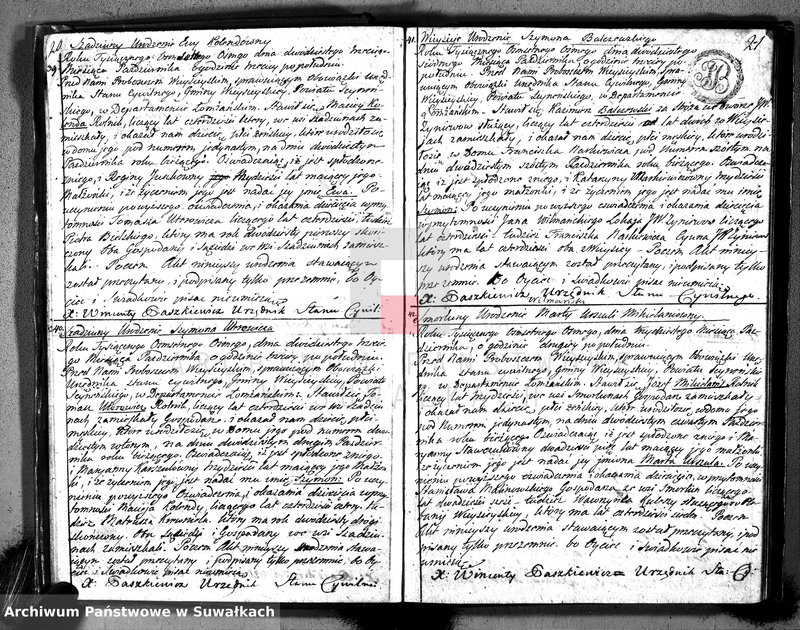 20
Szadziuny Urodzenie Ewy Kolendzowny
39.
Roku Tysiącznego Osmsetnego Osmego dnia dwódziestego trzeciego
Miesiąca Pazdziernika o godzinie trzeciy po południu.
Przed Nami Proboszczem Wieysieyskim, sprawuiącym obowiązki Urzę-
dnika Stanu Cywilnego, Gminy Wieysieyskiey, Powiatu Seynen-
skiego, w Departamencie Łomżańskim. Stawił się Maciey Ko-
lenda Rolnik, liczący lat czterdzieści cztery, we wsi Szadziunach za-
mieszkały, i okazał nam dziecię, płci żeńskiey, które urodziło się
w domu jego pod numerem jedynastym, na dniu dwódziestym
Pazdziernika roku bieżącego. Oswiadczaiąc, iż jest spłodzone
z niego, i Reginy Juszkowny trzydzieści lat maiącey jego
Małżonki, i że życzeniem jego jest nadać jey jmie Ewa. Po
uczynieniu powyższego oswiadczenia, i okazania dziecięcia w przy-
tomności Tomasza Utorowicza liczącego lat czterdzieści, tudzież
Piotra Bielskiego, który ma rok dwódziesty pierwszy skoń-
czony Oba Gospodarze i Sąsiedzi we wsi Szadziunach zamiesz-
kali. Poczem Akt ninieyszy urodzenia stawaiącym
został przeczytany, i podpisany tylko przezemnie, bo Oy-
ciec i Swiadkowie pisać nieumieią
X: Wincenty Paszkiewicz Urzędnik Stanu Cywil:
40.
Szadziuny Urodzenie Szymona Utorowicza
Roku Tysiącznego Osmsetnego Osmego, dnia dwódziestego trzecie-
go Miesiąca Pazdziernika o godzinie trzeciy po południu.
Przed Nami Proboszczem Wieysieyskim, sprawuiącym obowiązki
Urzędnika stanu cywilnego, Gminy Wieysieyskiey, Powiatu
Seynenskiego, w Departamencie Łomżańskim. Stawił się To-
masz Utorowicz Rolnik, liczący lat czterdzieści we wsi Szadziu-
nach zamieszkały Gospodarz, i okazał nam dziecię, płci
męskiey, które urodziło się w Domu jego pod numerem dwu-
dziestym wtorym, na dniu dwódziestym drugim Pazdzier-
nika roku bieżącego. Oswiadczaiąc, iż jest spłodzone z niego,
i Maryanny trzydzieści lat maiącey jego Małżon-
ki, i że życzeniem jego jest nadać mu imie Szymon. Po uczy-
nieniu powyższego Oswiadczenia, i okazania dziecięcia w przy-
tomności Macieja Kolendy, liczącego lat czterdzieści cztery, tu-
dzież Mateusza który ma rok dwódziesty drugi
skończony, Oba Sąsiedzi i Gospodarze we wsi Szadziu-
nach zamieszkali. Poczem Akt ninieyszy urodzenia stawa-
iącym został przeczytany i podpisany tylko przezemnie, bo Oy-
ciec i Swiadkowie pisać nieumieią
X: Paszkiewicz Urzędnik Stanu Cywilne:
21
41.
Wieysieje Urodzenie Szymona Balczewskiego
Roku Tysiącznego Osmsetnego Osmego dnia dwódziestego
siodmego Miesiąca Pazdziernika, o godzinie trzeciy po
południu. Przed Nami Proboszczem Wieysieyskim, spra-
wuiącym obowiązki Urzędnika Stanu Cywilnego, Gminy
Wieysieyskiey, Powiatu Seynenskiego, w Departamencie
Łomżańskim. Stawił się Kazimierz Balczewski za Stróża we Dworze JW
Żyniewow służący, liczący lat czterdzieści we dworze w Wieysie-
jach zamieszkały, i okazał nam dziecię, płci męskiey, które urodzi-
ło się, w Domu Franciszka Naskrewicza pod Numerem szostym na
dniu dwódziestym szostym Pazdziernika roku bieżącego. Oswiadcza-
iąc iż jest spłodzone z niego, i Katarzyny Markiewiczowny trzydzieści
lat maiącey jego małżonki, i że życzeniem jego jest nadać mu imie
Szymon. Po uczynieniu powyższego oswiadczenia i okazania dziecięcia
w przytomności Jana Wilmanskiego Lokaja JW Żyniewow liczącego
lat czterdzieści tudzież Franciszka Naskrewicza JW Żyniewow
który ma lat czterdzieści oba z Wieysiey. Poczem Akt niniey-
szy urodzenia stawaiącym został przeczytany, i podpisany tylko
przezemnie, bo Oyciec i Swiadkowie pisać nieumieią
X: Paszkiewicz Urzędnik Stanu Cywilnego.
Wilmanski
42.
Smorluny Urodzenie Marty Urszuli Mikielaniowny.
Roku Tysiącznego Osmsetnego Osmego, dnia trzydziestego Miesiąca Paz-
dziernika, o godzinie drugiey po południu.
Przed Nami Proboszczem Wieysieyskim, sprawuiącym obowiązki Urzę-
dnika stanu cywilnego, Gminy Wieysieyskiey, Powiatu Seynenskie-
go, w Departamencie Łomżańskim. Stawił się Jozef Mikielanis Rolnik
liczący lat trzydzieści, we wsi Smorlunach Gospodarz zamieszkały
i okazał nam dziecię, płci żeńskiey, które urodziło się, w domu jego
pod numerem jedynastym, na dniu dwódziestym czwartym Pazdzier-
nika roku bieżącego Oswiadczaiąc iż jest spłodzone z niego i Ma-
ryanny dwadzieścia pięć lat maiącey jego małżonki
i że życzeniem jego jest nadać jey jmiona Marta Urszula. Po uczy-
nieniu powyższego oswiadczenia i okazania dziecięcia, w przytomności
Stanisława Malinowskiego Gospodarza ze wsi Smorlun liczącego
lat dwadzieścia sześć tudzież Wawrzynca
Wieysieyskiey, który ma lat czterdzieści siedm. Poczem
Akt ninieyszy urodzenia stawaiącym został przeczytany, i pod-
pisany tylko przezemnie, bo Oyciec i Swiadkowie pisać nie-
umieią
X: Wincenty Paszkiewicz Urzędnik Sta: Cy:
Archiwum Państwowe w Suwałkach